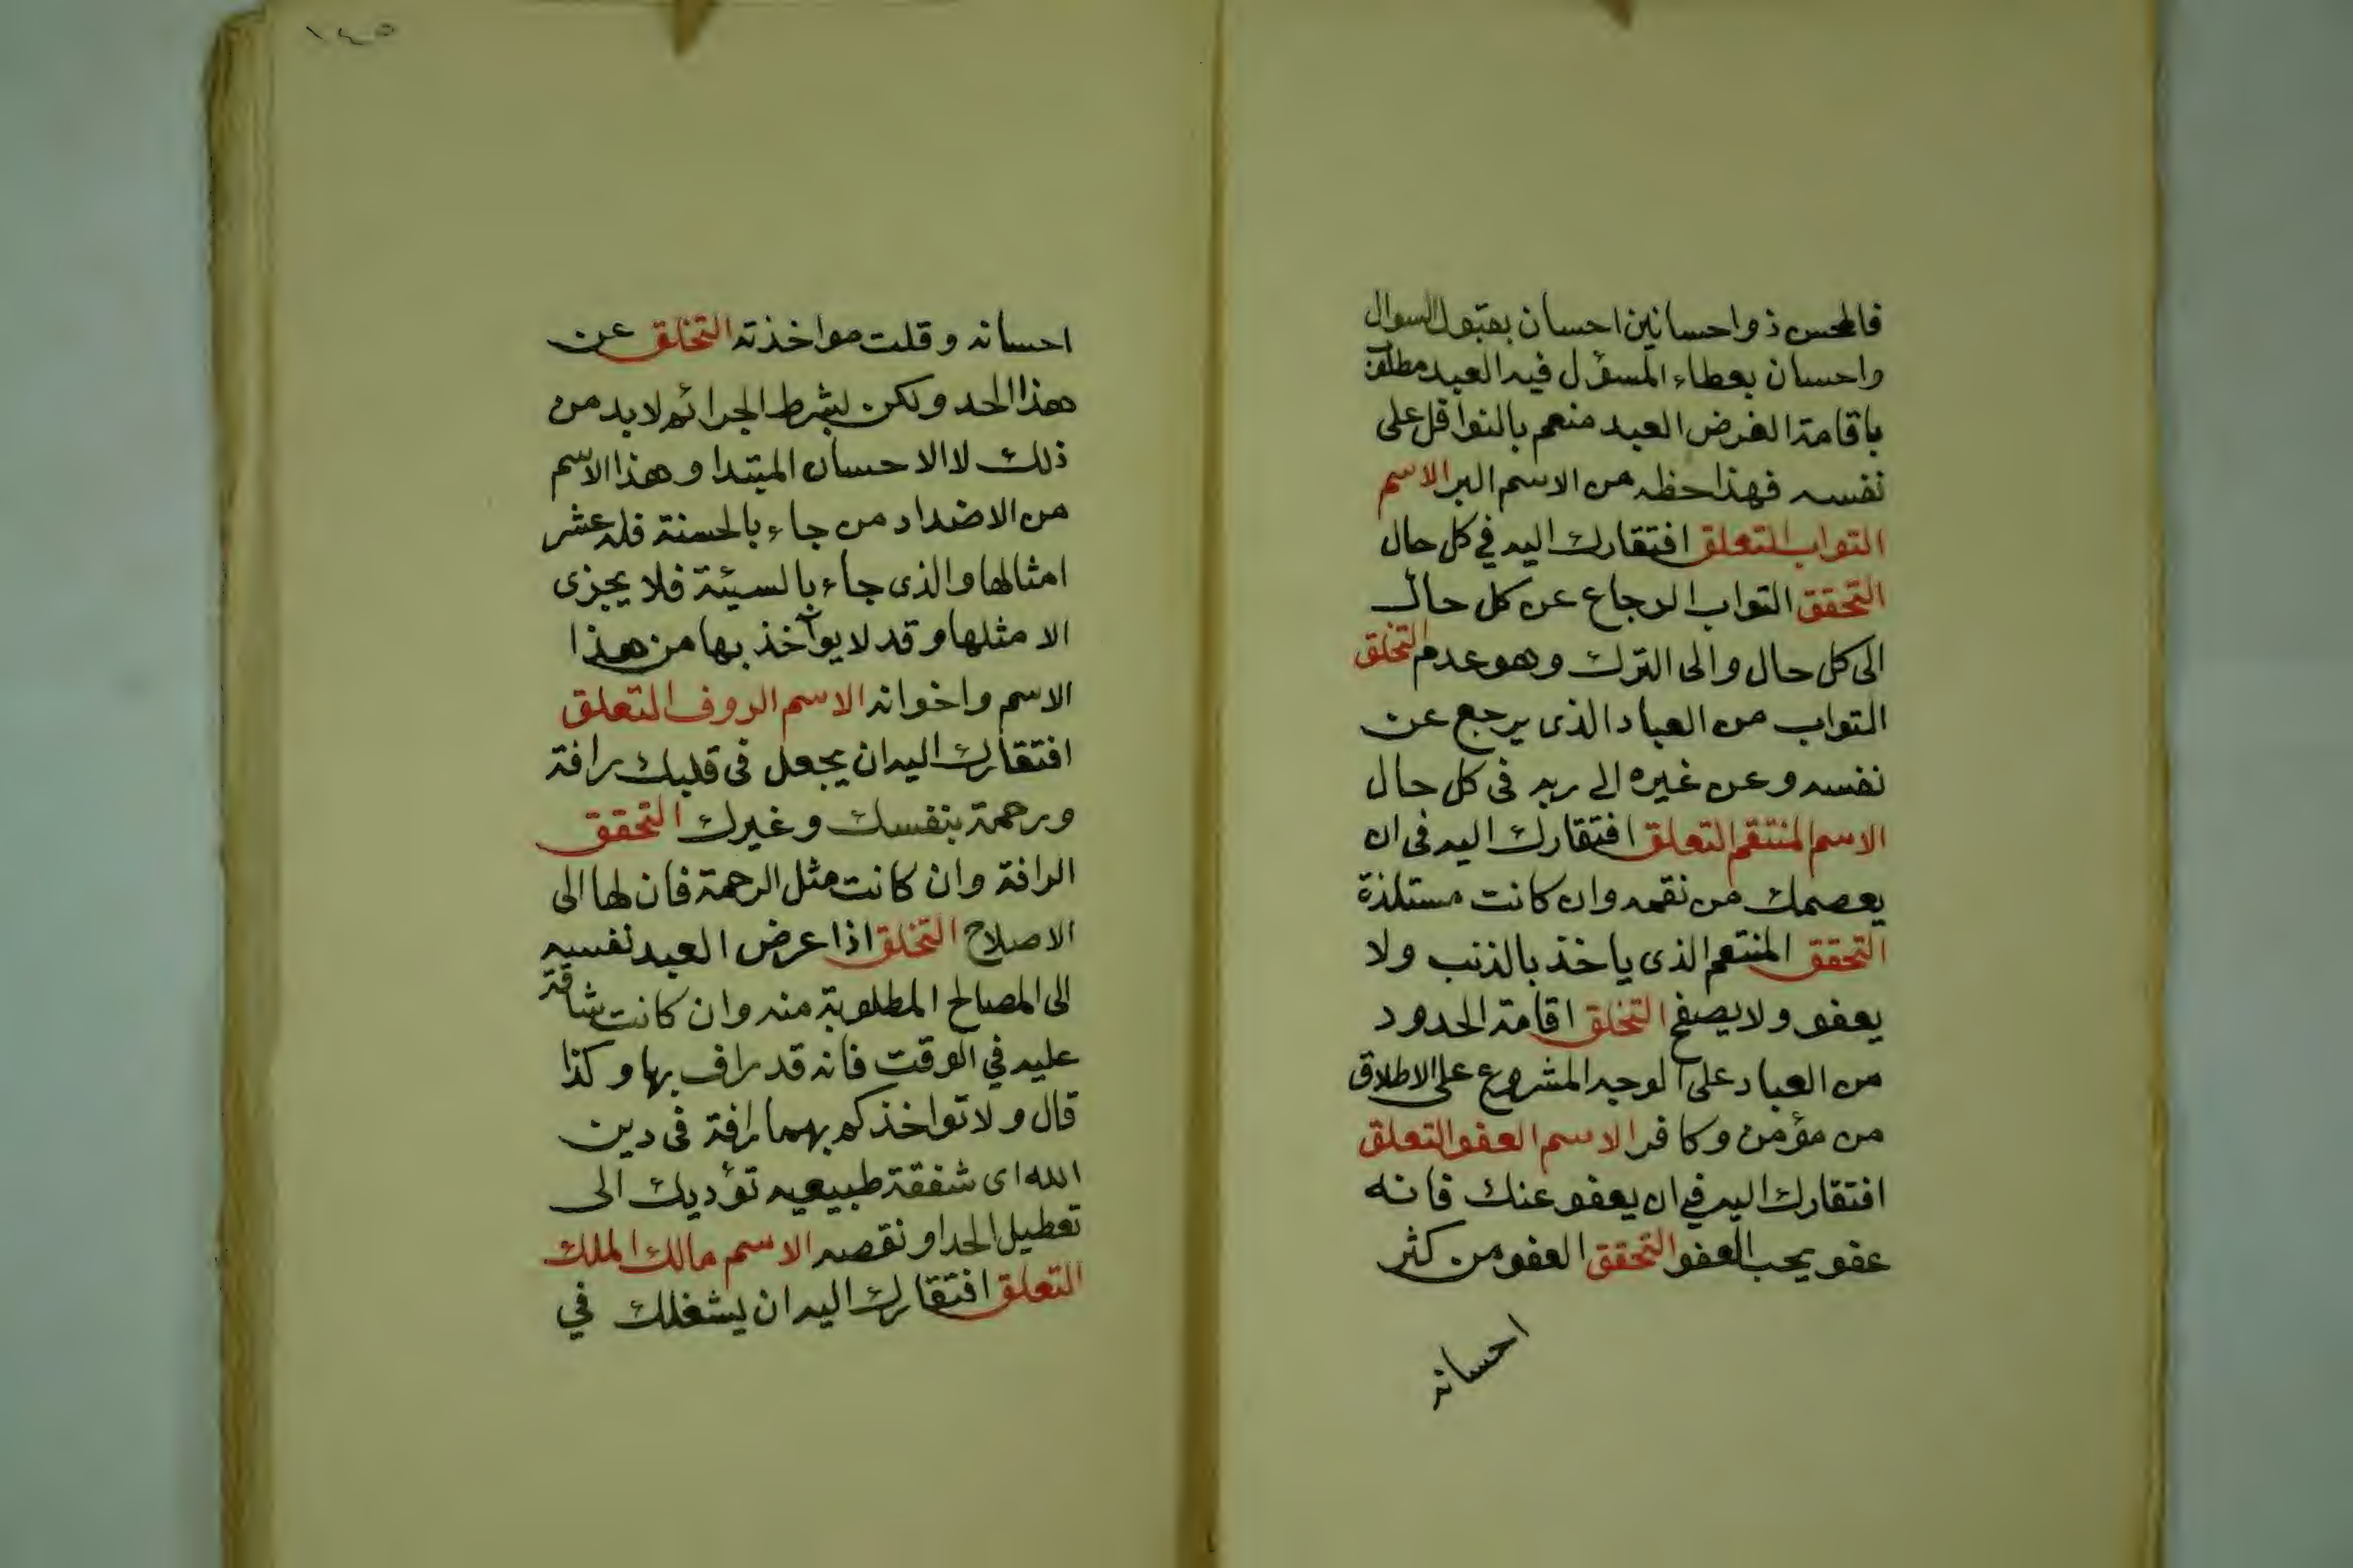 فالمحسن ذو احسانين احسان بقبول السوال
واحسان بعطاء المسؤل فيه العبد مطلق
باقامة الفرض العبد منعم بالنوافل على
نفسه فهذا حظه من الاسم البر الاسم
التواب التعلق افتقارك اليه في كل حال
التحقق التواب الرجاع عن كل حال
الى كل حال والى الترك وهو عدم التخلق
التواب من العباد الذى يرجع عن
نفسه وعن غيره الى ربه فى كل حال
الاسم المنتقم التعلق افتقارك اليه فى ان
يعصمك من نقمه وان كانت مستلذة
التحقق المنتقم الذى ياخذ بالذنب ولا
يعفو ولا يصفح التخلق اقامة الحدود
من العباد على الوجه المشروع على الاطلاق
من مؤمن وكافر الاسم العفو التعلق
افتقارك اليه في ان يعفو عنك فانه
عفو يحب العفو التحقق العفو من كثر
احسانه
١٤٥
احسانه وقلت مواخذته التخلق عن
هذا الحد ولكن بشرط الجرائم لابد من
ذلك لا الاحسان المبتدا وهذا الاسم
من الاضداد من جاء بالحسنة فله عشر
امثالها والذى جاء بالسيئة فلا يجزى
الا مثلها وقد لا يوآخذ بها من هذا
الاسم واخوانه الاسم الروف التعلق
افتقارك اليه ان يجعل فى قلبك رافة
ورحمة بنفسك وغيرك التحقق
الرافة وان كانت مثل الرحمة فان لها الى
الاصلاح التخلق اذا عرض العبد نفسه
الى المصالح المطلوبة منه وان كانت شاقة
عليه في الوقت فانه قد راف بها وكذا
قال ولا تواخذكم بهما رافة فى دين
الله اى شفقة طبيعيه تؤديك الى
تعطيل الحد او نقصه الاسم مالك الملك
التعلق افتقارك اليه ان يشغلك في